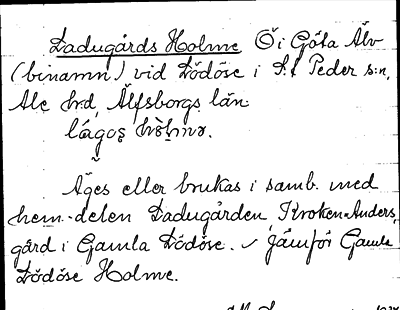 Ladugårds Holme Ö i Göta Älv
(binamn) vid Lödöse i S:t Peder s:n,
Ale hrd, Älfsborgs län.
Äges eller brukas i samb. med
hem.-delen Ladugården, Kroken-Anders,
gård i Gamla Lödöse. jämför Gamla
Lödöse Holme.